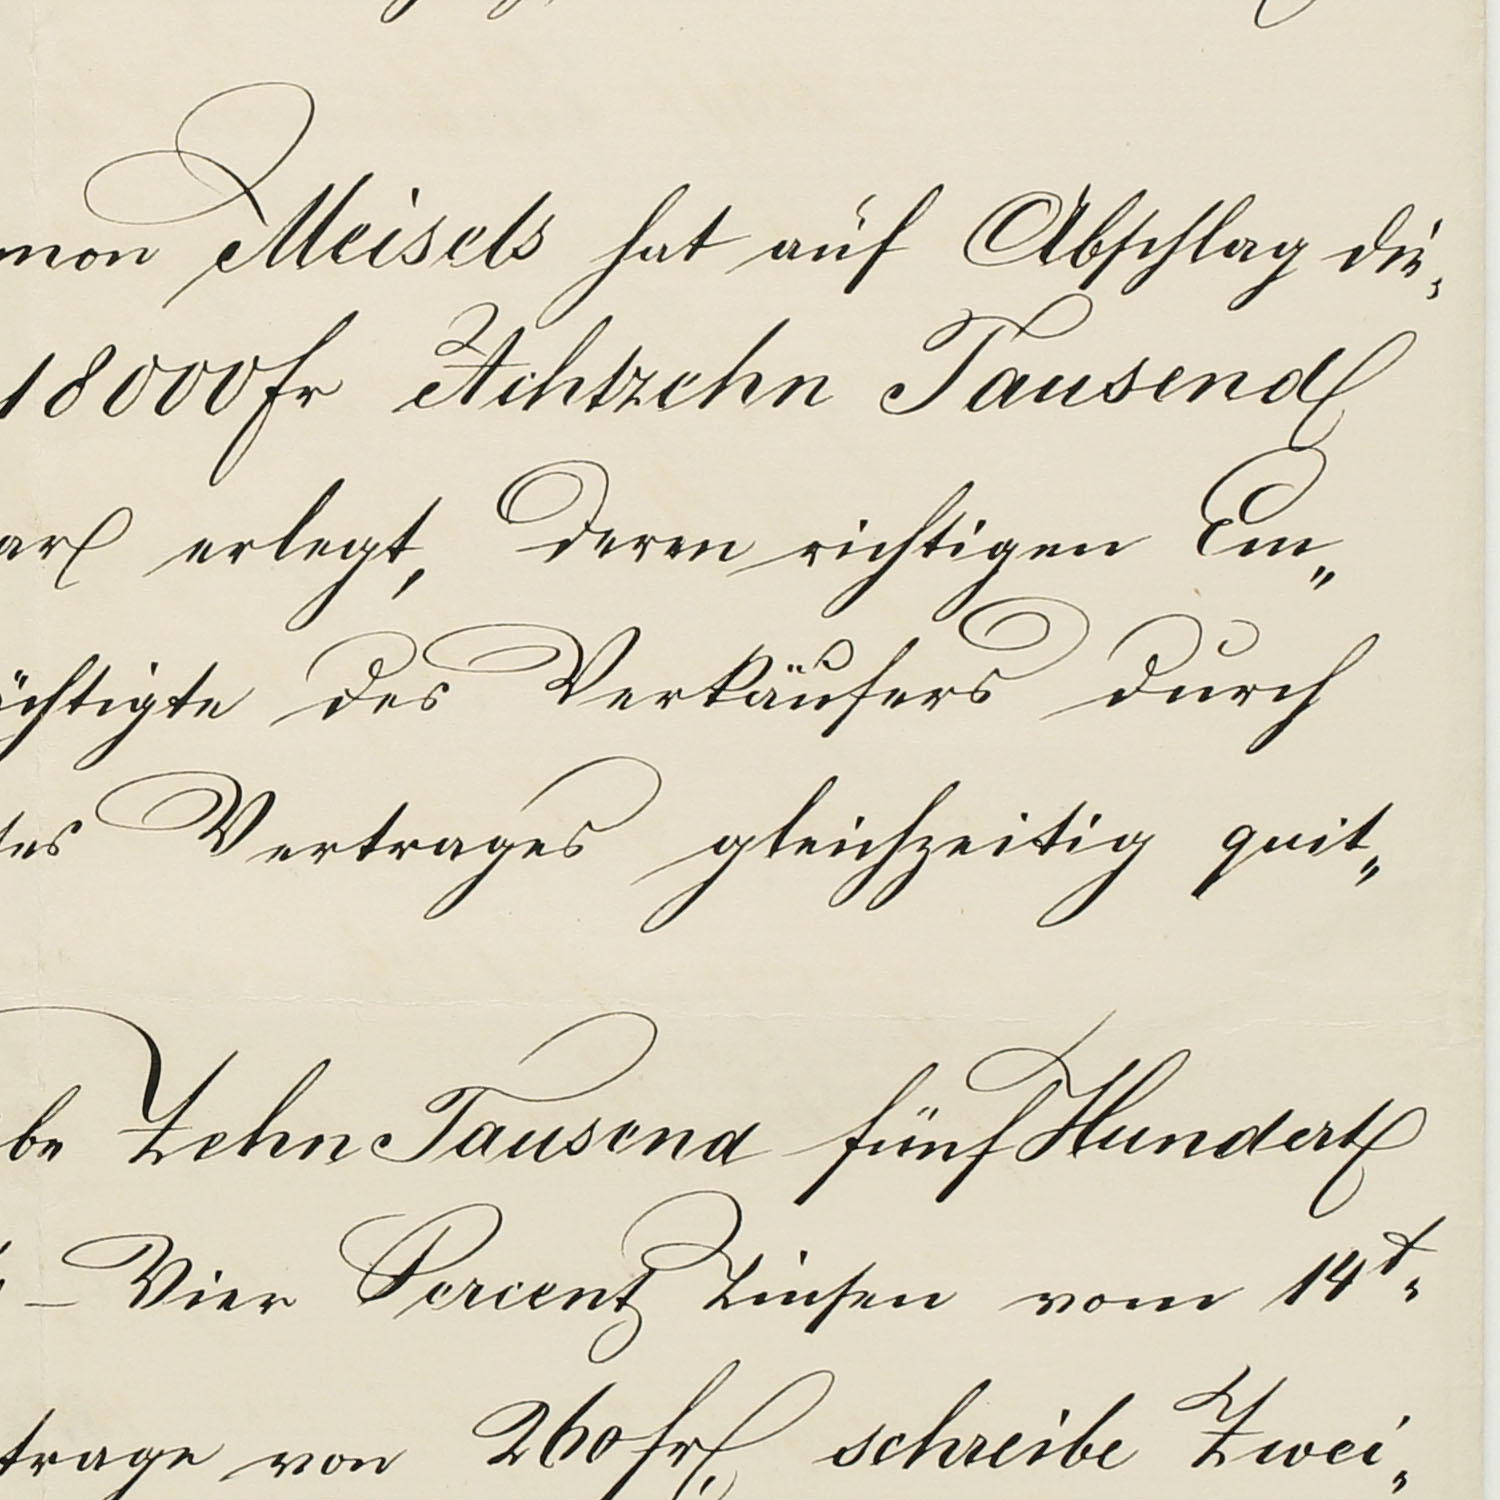 mon Meisels hat auf Abschlag die,
18000 fr Achtzehn Tausend
ar erlegt, deren richtigen Em„
ächtigte des Verkäufers durch
tes Vertrages gleichzeitig quit„
be Zehn Tausend fünf Hundert
– Vier Percent Zinsen vom 14t.
trage von 260 fr, schreibe Zwei„